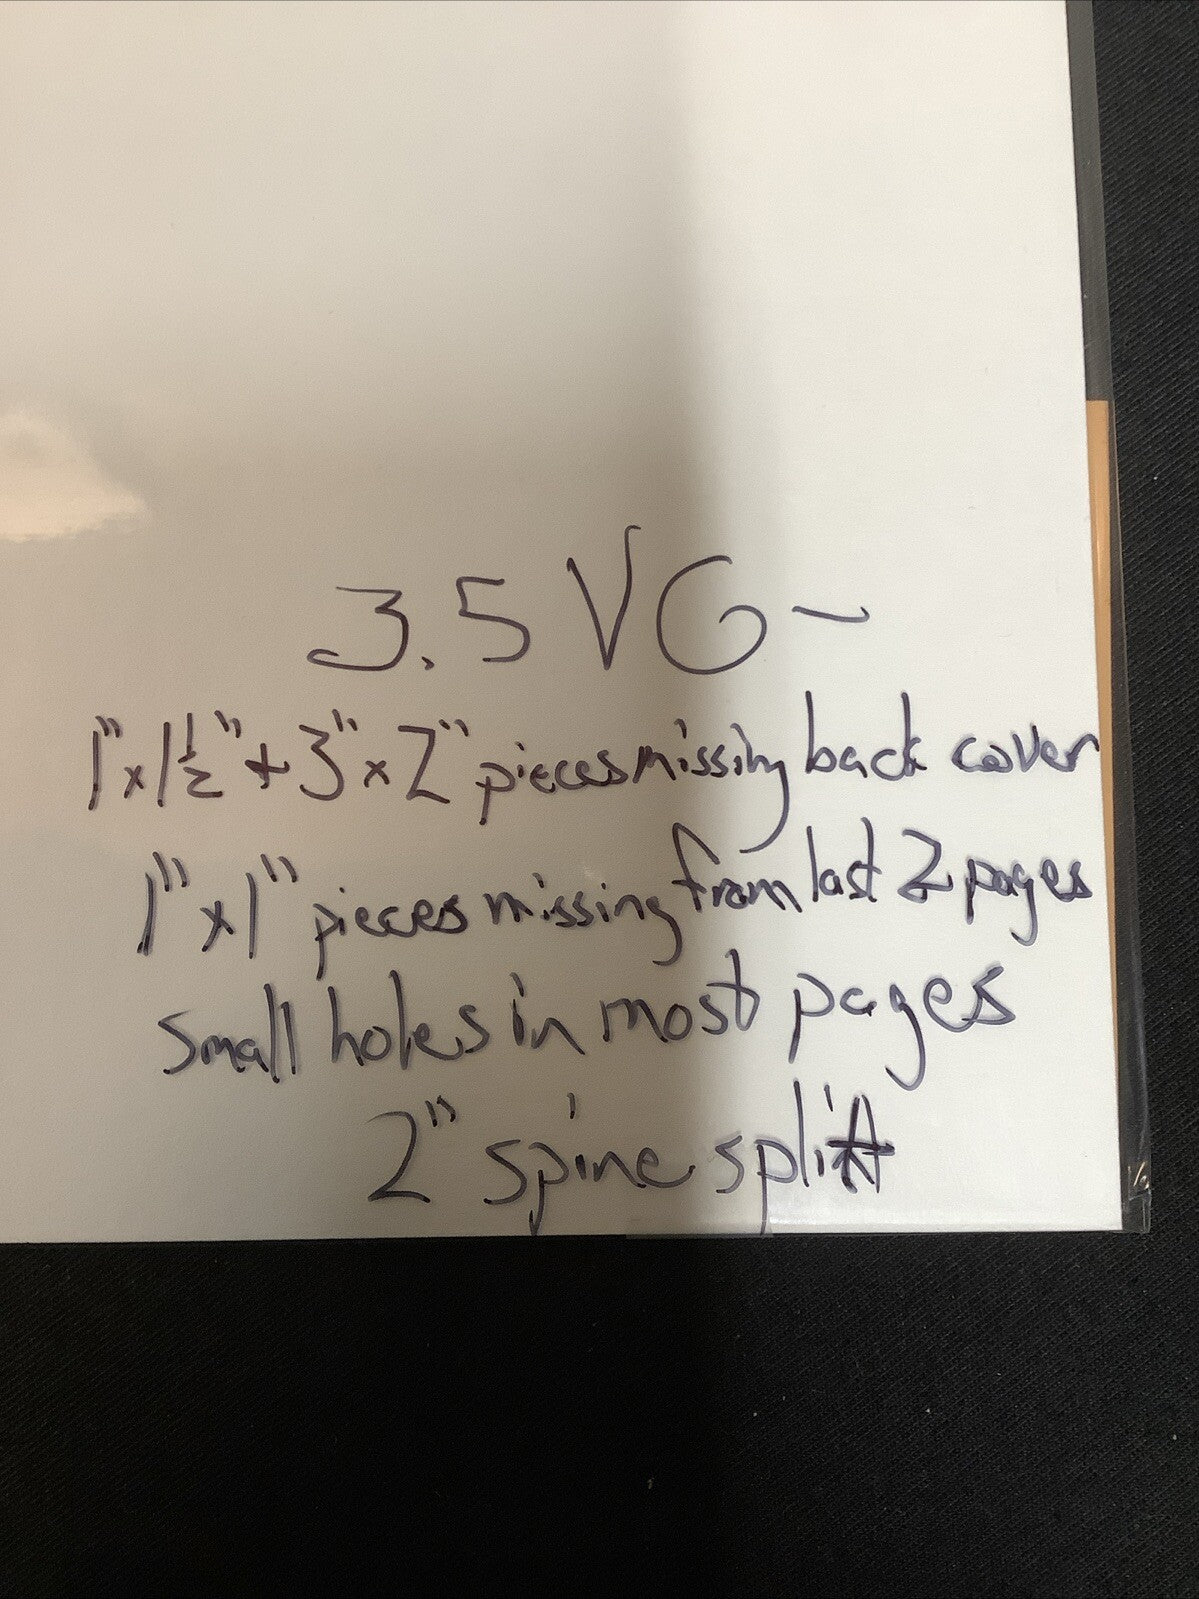 3.5 VG-
1"x1½" + 3"x2" pieces missing back cover
1"x1" pieces missing from last 2 pages
small holes in most pages
2" spine split